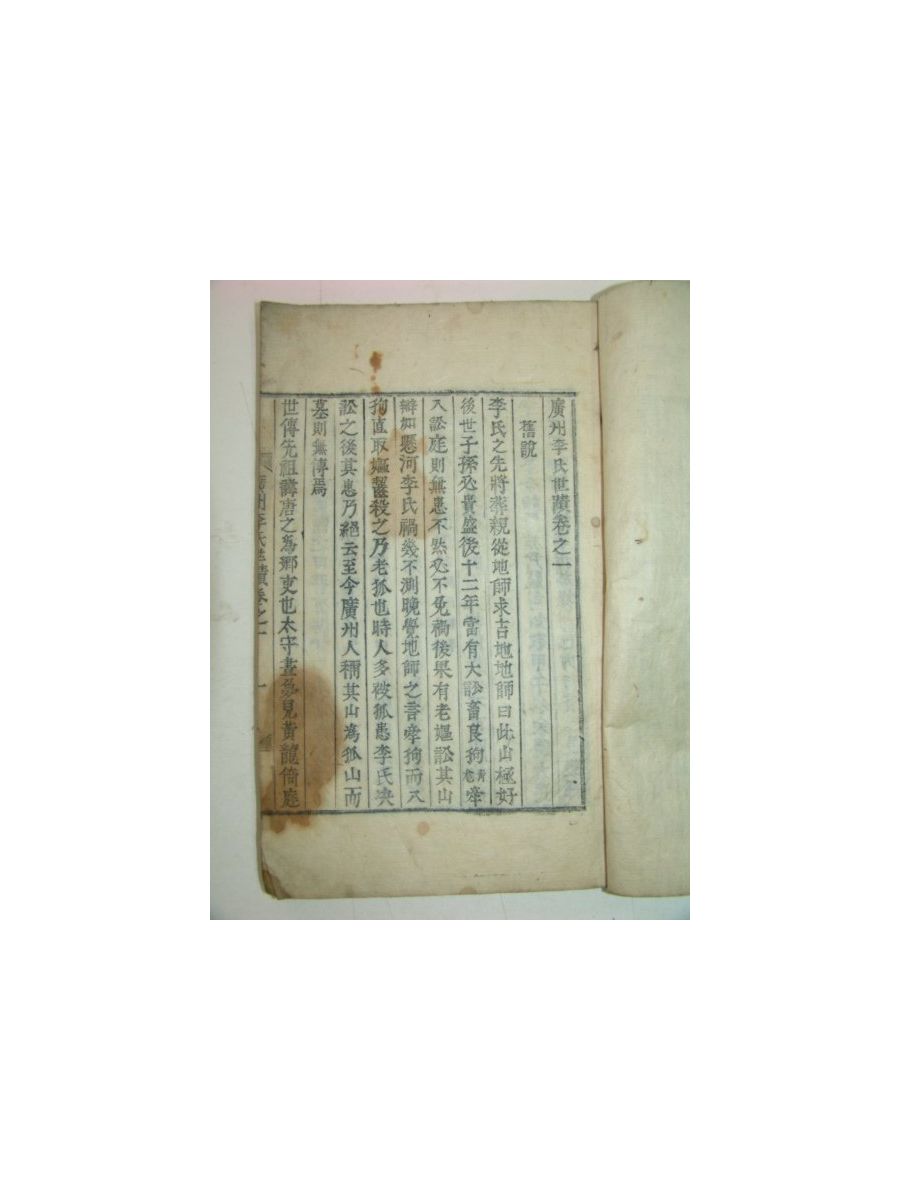 廣州李氏世蹟卷之一
舊說
李氏之先將葬親從地師求吉地地師曰此山極好
後世子孫必貴盛後十二年當有大訟畜良狗青卷牽
入訟庭則無患不然必不免禍後果有老嫗訟其山
辯如懸河李氏禍幾不測晚覺地師之言牽狗而入
狗直取嫗齧殺之乃老狐也時人多被狐患李氏決
訟之後其患乃絕云至今廣州人稱其山爲狐山而
墓則無傳焉
世傳先祖諱唐之爲鄕吏也太守晝夢見黃龍倚庭
廣州李氏世蹟卷之一 一